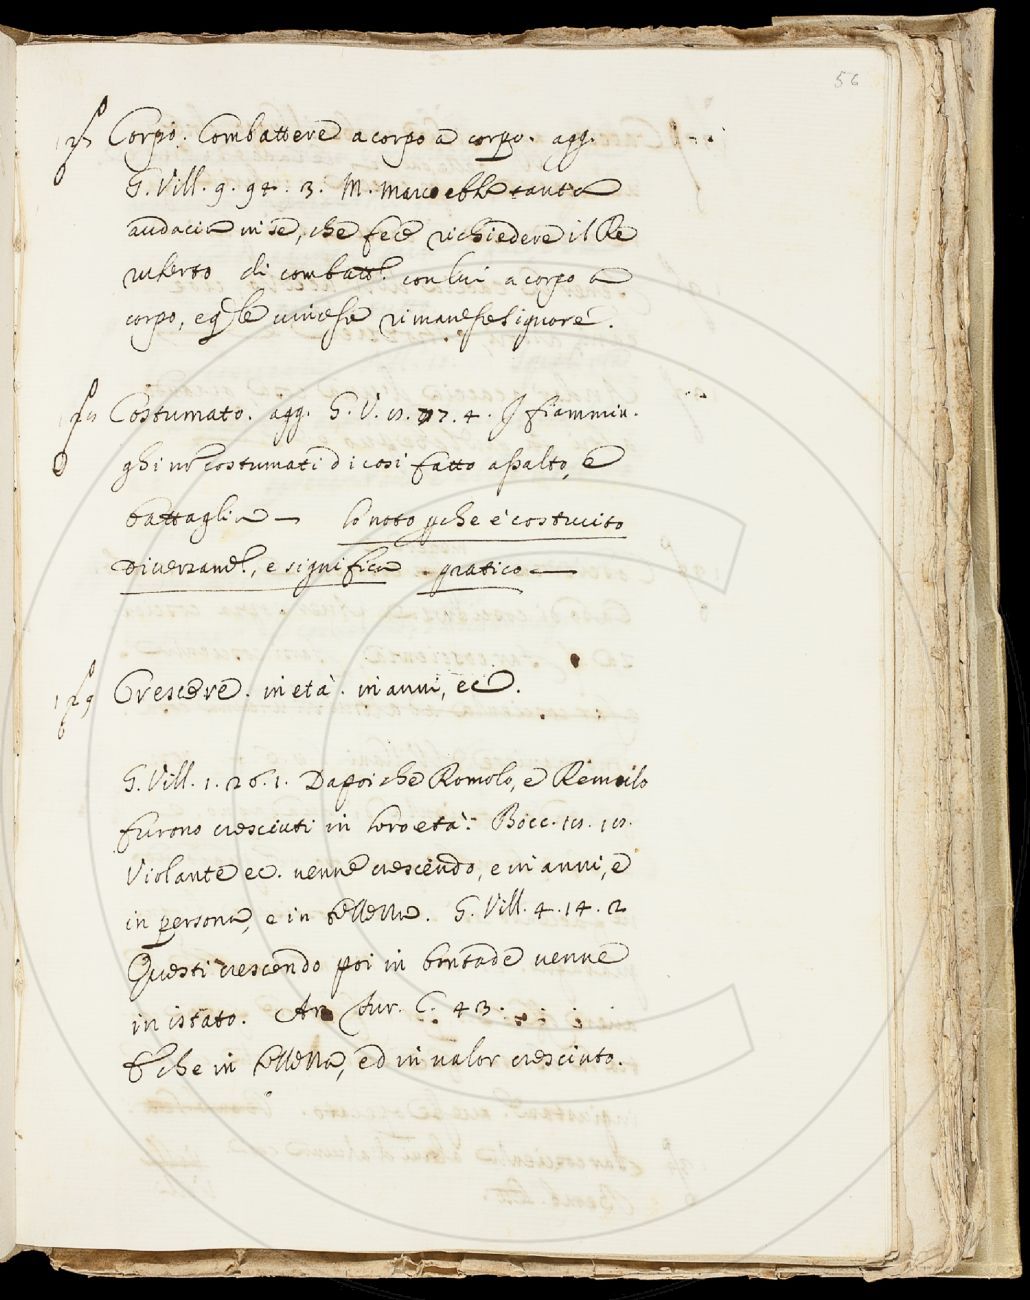 56
Corpo. Combattere a corpo a corpo. agg.
G. Vill. 9. 94. 3. M. Marco ebbe tanta
audacia in se, che fece richiedere il Re
Ruberto di combatt.e con lui a corpo a
corpo, e q.le vincesse rimanesse signore.
Costumato. agg. G. V. 12. 4. I fiammin.
ghi nō costumati di cosi fatto assalto, e
battaglia — lo noto p che è costruito
Diversamt.e, e significa pratico —
Crescere. in età. in anni, ec.
G. Vill. 1. 26. 1. Dapoi che Romolo, e Remolo
furono cresciuti in loro età: Bocc.
Violante ec. venne crescendo, e in anni, e
in persona, e in bellezza. G. Vill. 4. 14. 2
Questi crescendo poi in bontade venne
in istato. Ar. fur. C. 43.
che in bellezza, ed in valor cresciuto.